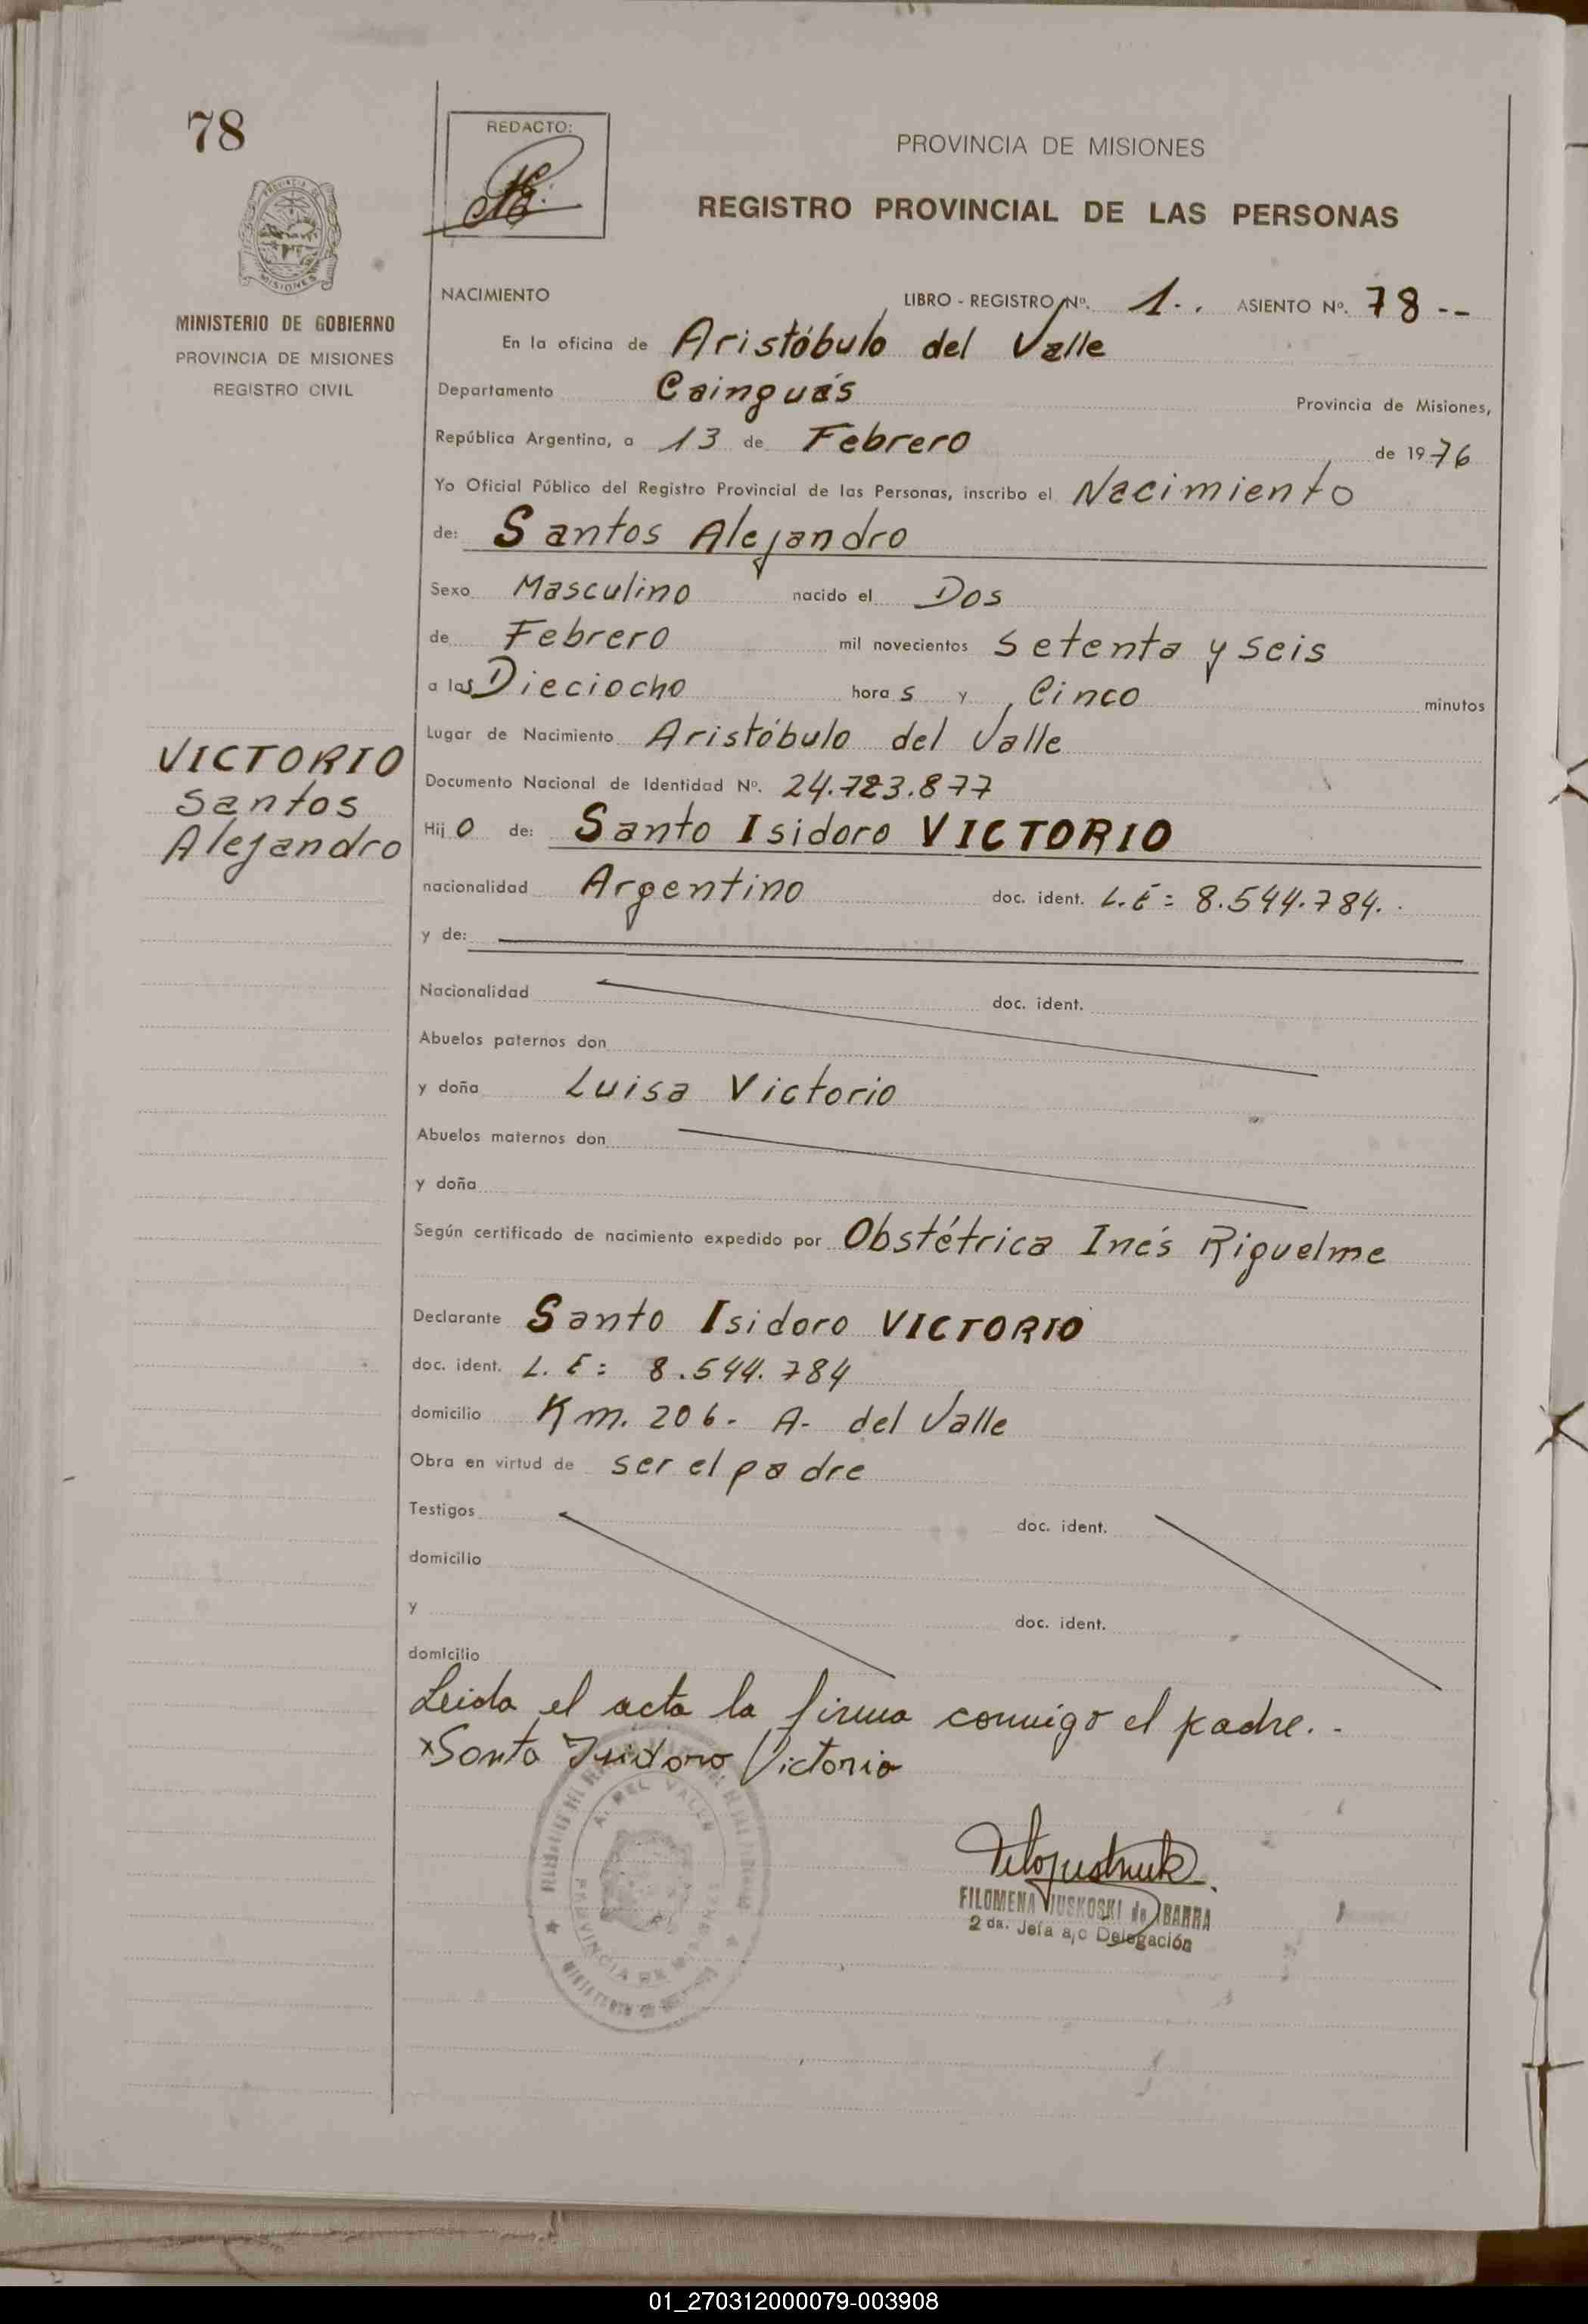 78
REDACTO:
PROVINCIA DE MISIONES
REGISTRO PROVINCIAL DE LAS PERSONAS
MINISTERIO DE GOBIERNO
PROVINCIA DE MISIONES
REGISTRO CIVIL
NACIMIENTO LIBRO - REGISTRO Nº. 1.. ASIENTO Nº. 78 --
En la oficina de Aristóbulo del Valle
Departamento Cainguás Provincia de Misiones,
República Argentina, a 13 de Febrero de 1976
Yo Oficial Público del Registro Provincial de las Personas, inscribo el Nacimiento
de: Santos Alejandro
Sexo Masculino nacido el Dos
de Febrero mil novecientos Setenta y Seis
a las Dieciocho horas y Cinco minutos
Lugar de Nacimiento Aristóbulo del Valle
Documento Nacional de Identidad Nº. 24.723.877
VICTORIO
Santos
Alejandro
Hijo de: Santo Isidoro VICTORIO
nacionalidad Argentino doc. ident. L.E: 8.544.784..
y de:
Nacionalidad doc. ident.
Abuelos paternos don
y doña Luisa Victorio
Abuelos maternos don
y doña
Según certificado de nacimiento expedido por Obstétrica Inés Riquelme
Declarante Santo Isidoro VICTORIO
doc. ident. L.E: 8.544.784
domicilio Km. 206- A- del Valle
Obra en virtud de ser el padre
Testigos doc. ident.
domicilio
y doc. ident.
domicilio
Leida el acta la firma conmigo el padre.-
xSanto Isidoro Victorio
A. DEL VALLE
PROVINCIA DE MISIONES
FILOMENA JUSKOSKI de IBARRA
2da. Jefa a/c Delegación
01_270312000079-003908